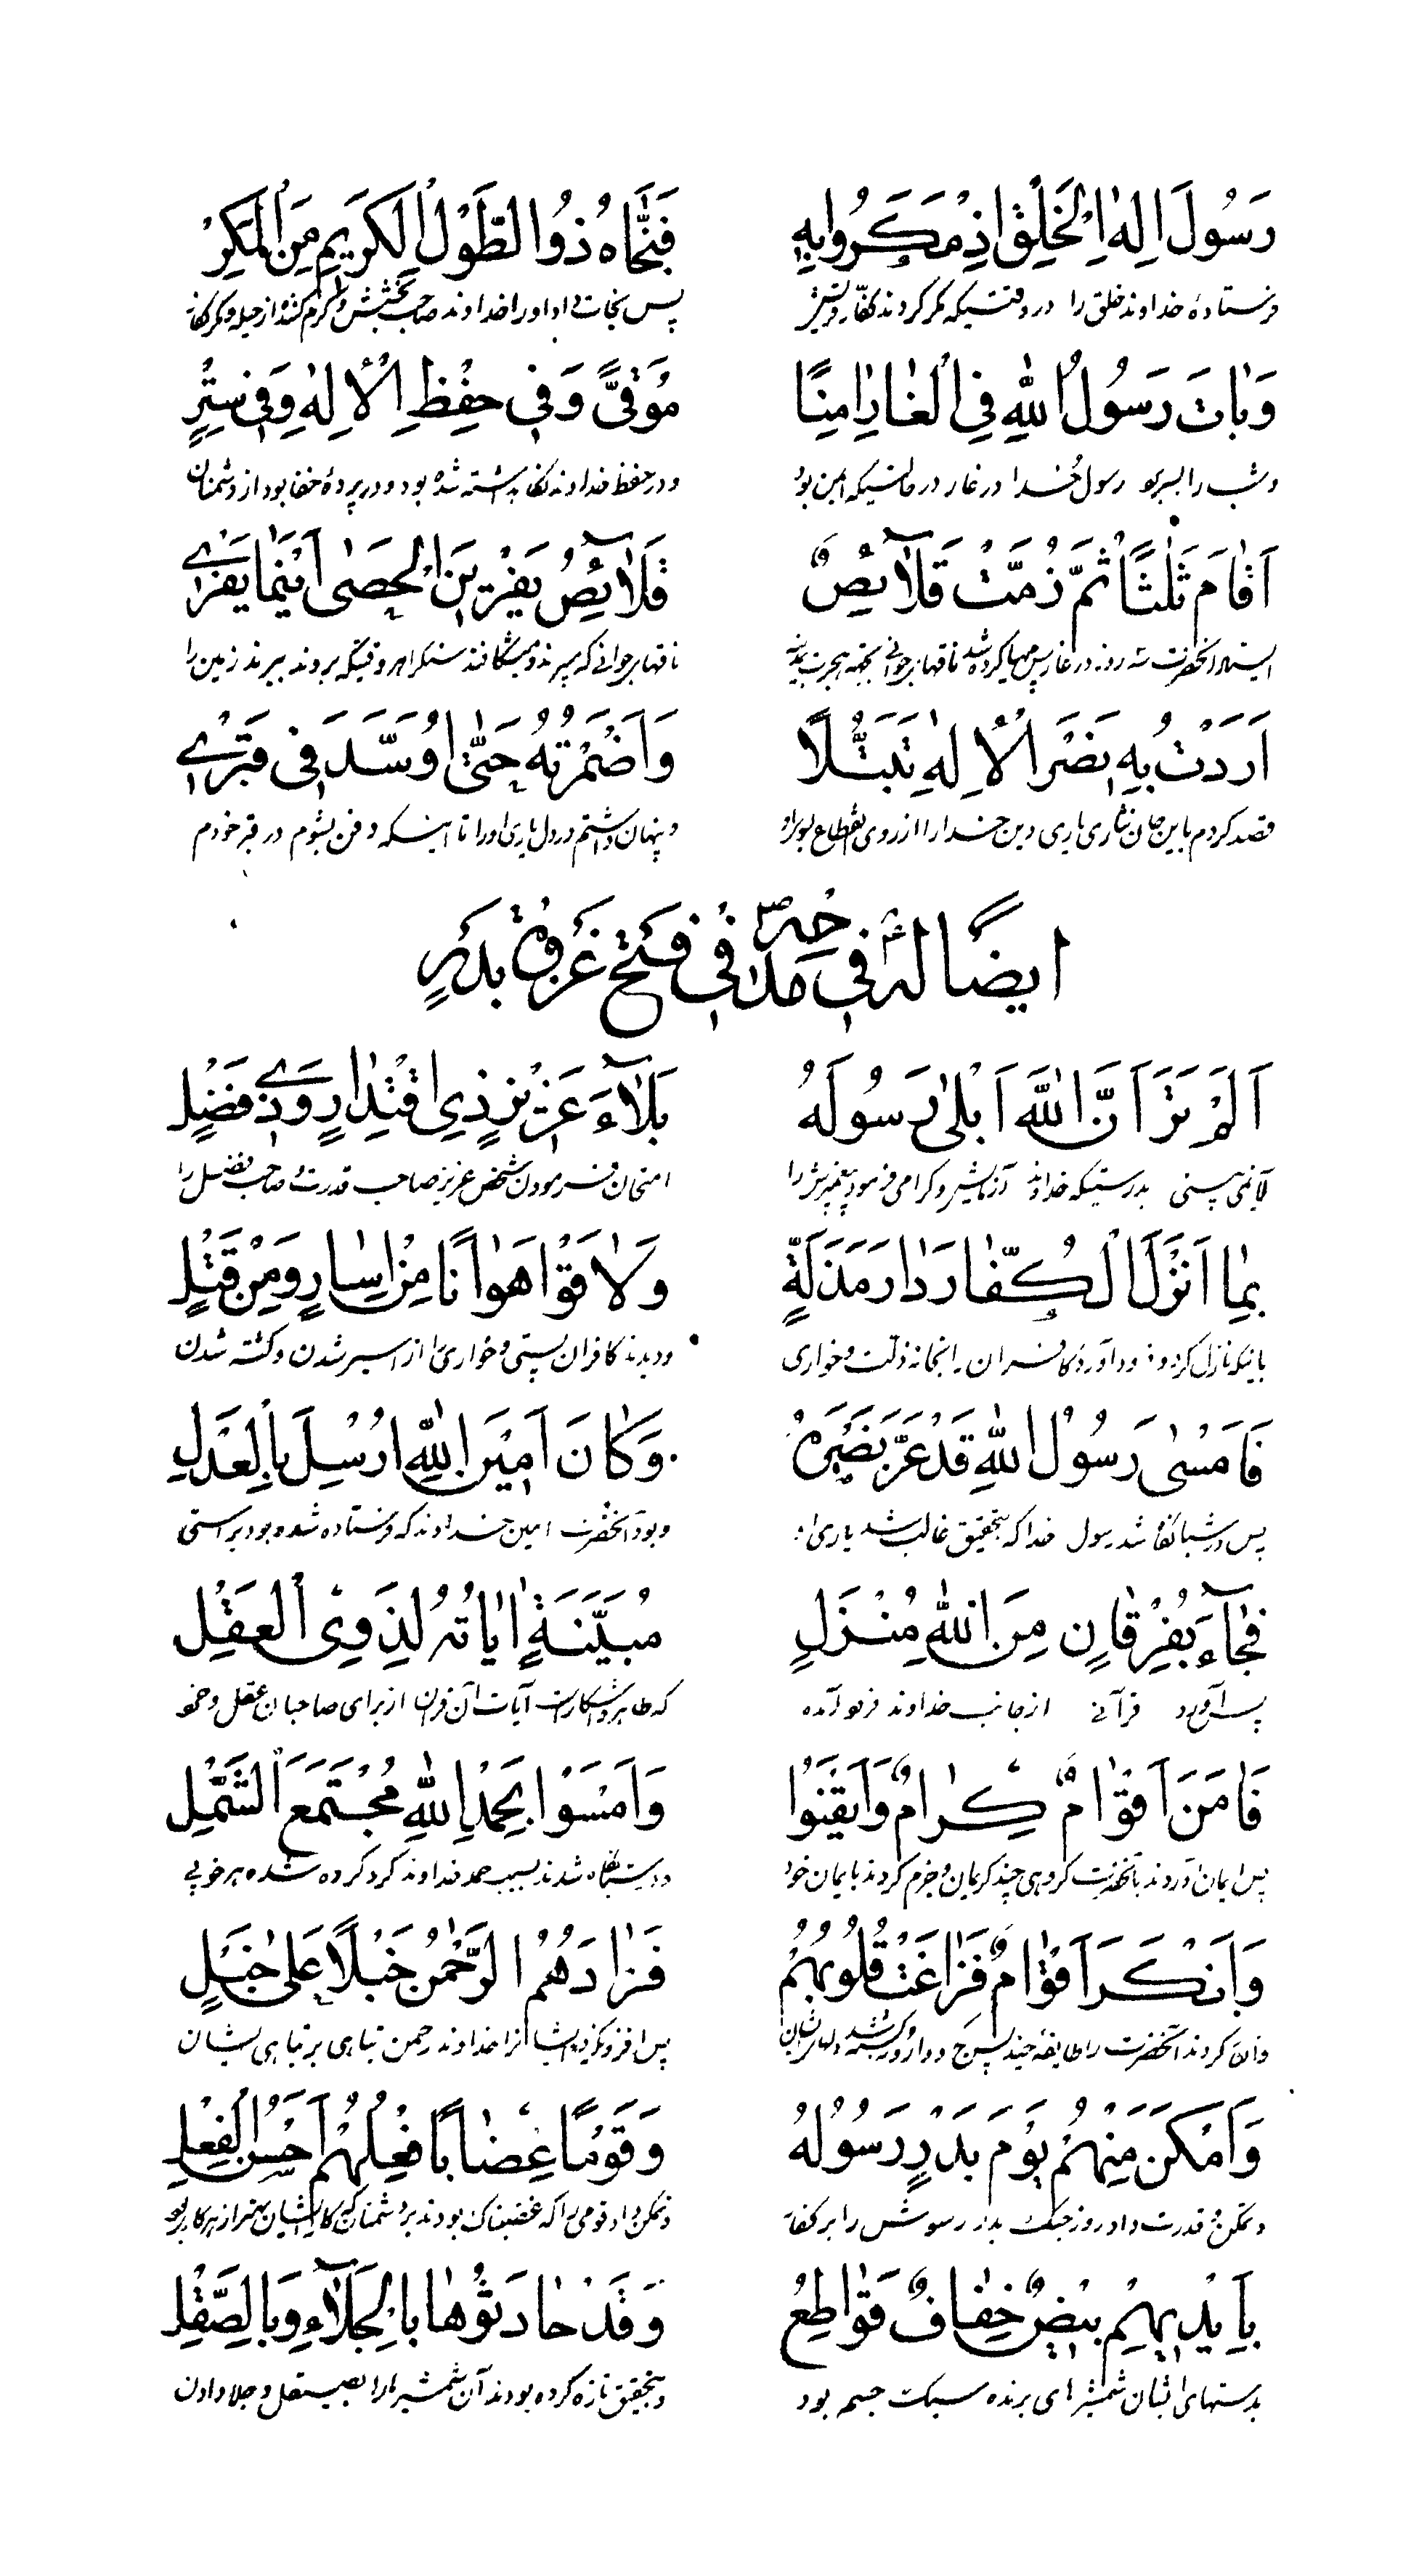 رَسُولَ اِلٰهِ الْخَلْقِ اِذْ مَكَرُوا بِهِ
فَنَجَّاهُ ذُو الطَّوْلِ الْكَرِيمِ مِنَ الْمَكْرِ
فرستادهٔ خداوند خلق را در وقتیکه مکر کردند کفّار قریش
پس نجات داد او را خداوند صاحب بخشش و کرم کننده از حیله و مکر کفار
وَبٰاتَ رَسُولُ اللّٰهِ فِى الْغٰارِ اٰمِنًا
مُوَقًّى وَفِى حِفْظِ الْاِلٰهِ وَفِى سِتْرٍ
و شب را بسر برد رسول خدا در غار در حالتیکه ایمن بود
و در حفظ خداوند نگاهداشته شده بود و در پردهٔ خفا بود از دشمنان
اَقٰامَ ثَلٰثًا ثُمَّ زُمَّتْ قَلٰٓائِصٌ
قَلٰٓائِصُ يَفْرِينَ الْحَصٰى اَيْنَمٰا يَفْرِى
ایستاد آنحضرت سه روز در غار پس مهیا کرده شد ناقهای جوانی بجهة هجرت بمدینه
ناقهای جوانی که میبرند و میشکافند سنگ را هر وقتیکه بروند ببرند زمین را
اَرَدْتُ بِهِ نَصْرَ الْاِلٰهِ تَبَتُّلًا
وَاَضْمَرْتُهُ حَتّٰى اُوَسَّدَ فِى قَبْرِى
قصد کردم باین جان نثاری یاری دین خدا را از روی انقطاع بسوی او
و پنهان داشتم در دل یاری او را تا اینکه دفن بشوم در قبر خودم
ايضًا له فى مدحه فى فتح غزوة بدرٍ
اَلَمْ تَرَ اَنَّ اللّٰهَ اَبْلٰى رَسُولَهُ
بَلٰٓاءَ عَزِيزٍ ذِى اقْتِدٰارٍ وَذِى فَضْلٍ
آیا نمی بینی بدرستیکه خداوند آزمایش و کرامی فرمود پیغمبرش را
امتحان فرمودن شخص عزیز صاحب قدرت و صاحب فضل را
بِمٰا اَنْزَلَ الْكُفّٰارَ دٰارَ مَذَلَّةٍ
وَلٰاقَوْا هَوٰانًا مِنْ اِسٰارٍ وَمِنْ قَتْلٍ
باینکه نازل کرد و فرود آورد کافران را بخانه ذلت و خواری
و دیدند کافران پستی و خواری را از اسیر شدن و کشته شدن
فَاَمْسٰى رَسُولُ اللّٰهِ قَدْ عَزَّ نَصْرُهُ
وَكٰانَ اَمِينَ اللّٰهِ اُرْسِلَ بِالْعَدْلِ
پس در شبانگاه شد رسول خدا که بتحقیق غالب شد یاری او
و بود آنحضرت امین خداوند که فرستاده شده بود براستی
فَجٰٓاءَ بِفُرْقٰانٍ مِنَ اللّٰهِ مُنْزَلٍ
مُبَيَّنَةٍ اٰيٰاتُهُ لِذَوِى الْعَقْلِ
پس آورد قرآنی از جانب خداوند فرود آمده
که ظاهر و آشکار است آیات آن قرآن از برای صاحبان عقل و خرد
فَاٰمَنَ اَقْوٰامٌ كِرٰامٌ وَاَيْقَنُوا
وَاَمْسَوْا بِحَمْدِ اللّٰهِ مُجْتَمِعَ الشَّمْلِ
پس ایمان آوردند بآنحضرت گروهی چند کریمان و جزم کردند بایمان خود
و در شبانگاه شدند بسبب حمد خداوند گرد کرده شده هر خوبی
وَاَنْكَرَ اَقْوٰامٌ فَزٰاغَتْ قُلُوبُهُمْ
فَزٰادَهُمُ الرَّحْمٰنُ خَبْلًا عَلٰى خَبْلٍ
و انکار کردند آنحضرت را طایفهٔ چند پس کج و واژگون گشته شد دلهای ایشان
پس افزون گردید ایشان را خداوند رحمن تباهی بر تباهی ایشان
وَاَمْكَنَ مِنْهُمْ يَوْمَ بَدْرٍ رَسُولَهُ
وَقَوْمًا غِضٰابًا فِعْلُهُمْ اَحْسَنُ الْفِعْلِ
و تمکن و قدرت داد روز جنگ بدر رسولش را بر کفار
و تمکن داد قومی را که غضبناک بودند بر دشمنان که کار ایشان بهتر از هر کار بود
بِاَيْدِيهِمْ بِيضٌ خِفٰافٌ قَوٰاطِعُ
وَقَدْ حٰادَثُوهٰا بِالْجَلٰٓاءِ وَبِالصَّقْلِ
بدستهای ایشان شمشیرهای برنده سبک جسم بود
و بتحقیق تازه کرده بودند آن شمشیرها را بصیقل و جلا دادن